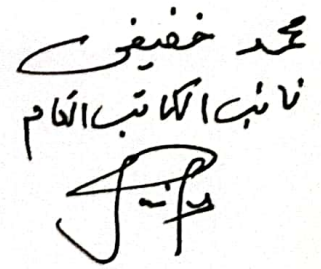 محمد خفيفي
نائب الكاتب العام